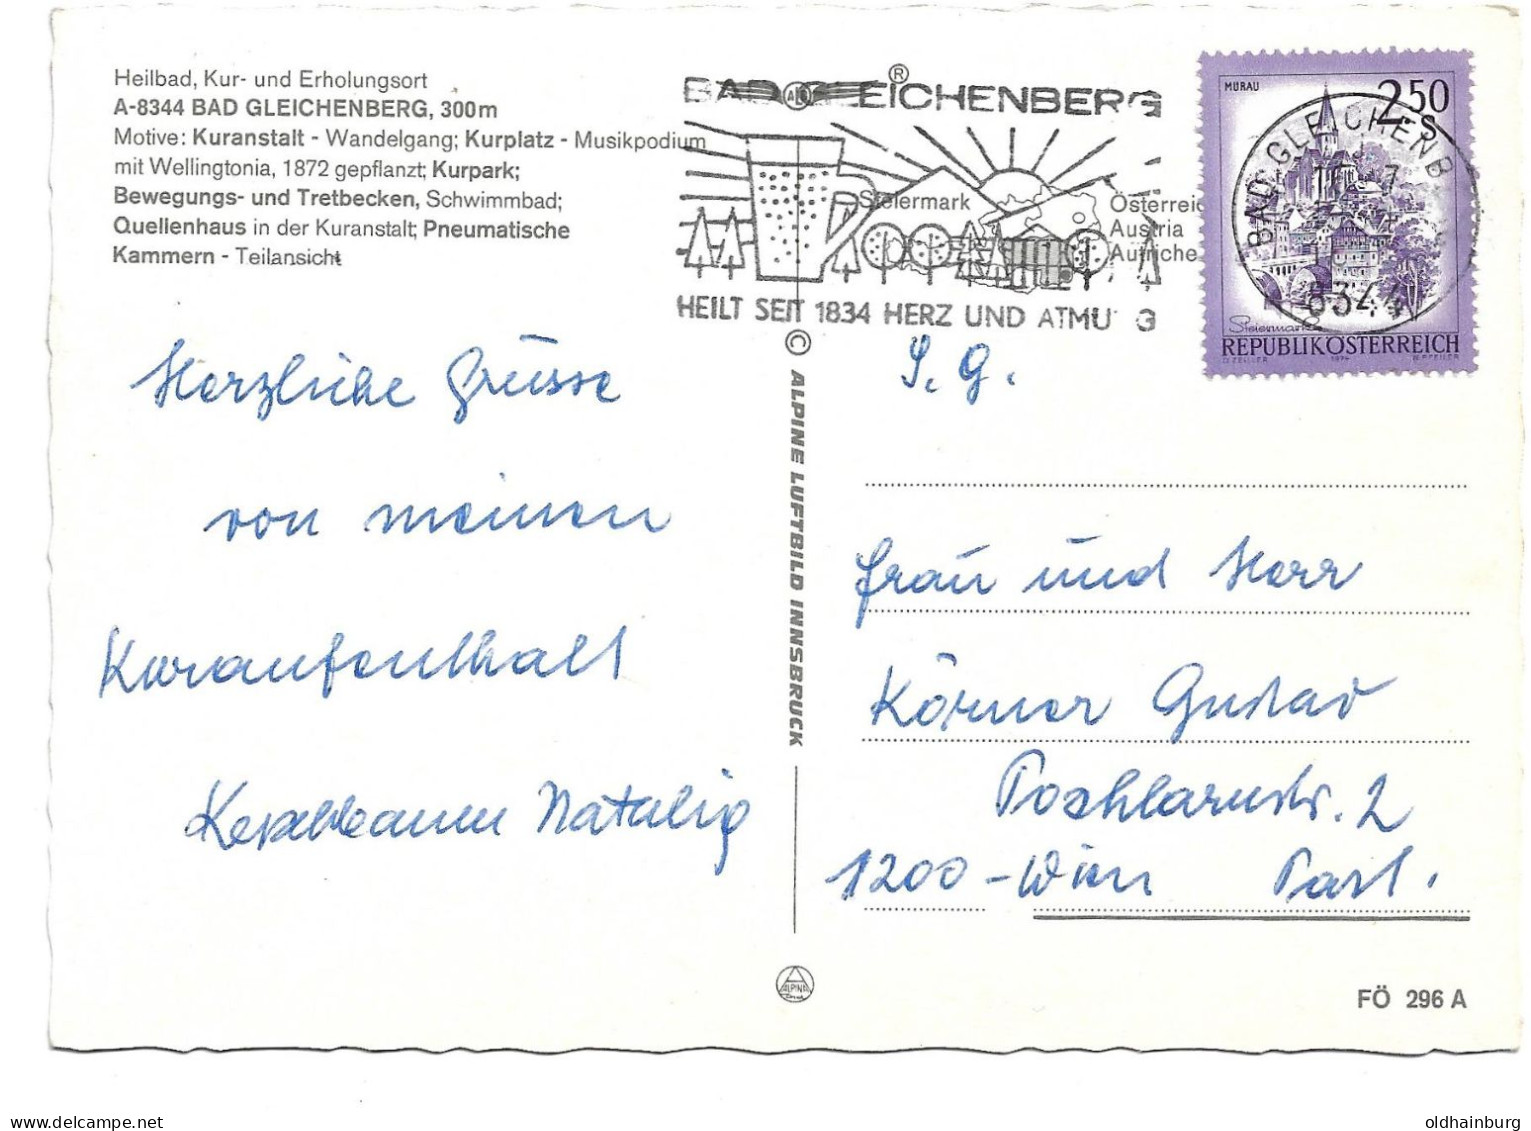 Heilbad, Kur- und Erholungsort
A-8344 BAD GLEICHENBERG, 300m
Motive: Kuranstalt - Wandelgang; Kurplatz - Musikpodium
mit Wellingtonia, 1872 gepflanzt; Kurpark;
Bewegungs- und Tretbecken, Schwimmbad;
Quellenhaus in der Kuranstalt; Pneumatische
Kammern - Teilansicht
BAD GLEICHENBERG
®
Steiermark
Österreich
Austria
Autriche
HEILT SEIT 1834 HERZ UND ATMU G
MURAU
2.50
S
BAD GLEICHENB
8344
Steiermark
REPUBLIK ÖSTERREICH
O. ZEILLER 1974 W. PFEILER
Herzliche Grüsse
von meinen
Kuraufenthalt
Natalia
© ALPINE LUFTBILD INNSBRUCK
S. G.
Frau und Herr
Körner Gustav
Pochlarnstr. 2
1200 - Wien
ALPINE
FÖ 296 A
oldhainburg